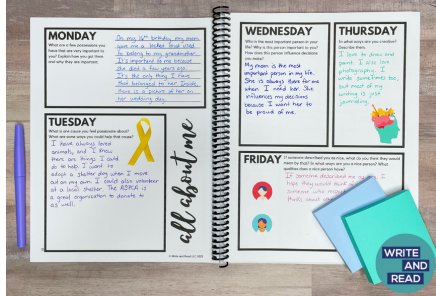 MONDAY
What are a few possessions you
have that are very important to
you? Explain how you got them
and why they are important.
On my 16th birthday, my mom
gave me a locket that used
to belong to my grandmother.
It's important to me because
she died a few years ago.
It's the only thing I have
that belonged to her. Inside,
there is a picture of her on
her wedding day.
TUESDAY
What is one cause you feel passionate about?
What are some ways you could help that cause?
I have always loved
animals, and I know
there are things I could
do to help. I want to
adopt a shelter dog when I
move out on my own. I could also volunteer
at a local shelter. The ASPCA is
a great organization to donate to
as well.
all about me
© Write and Read LLC, 2020
WEDNESDAY
Who is the most important person in your
life? Why is this person important to you?
How does this person influence decisions
you make?
My mom is the most
important person in my life.
She is always there for me
when I need her. She
influences my decisions
because I want her to
be proud of me.
THURSDAY
In what ways are you creative?
Describe them.
I love to draw and
paint. I also love
photography. I
write sometimes too,
but most of my
writing is just
journaling.
FRIDAY
If someone described you as nice, what do you think they would
mean by that? In what ways are you a nice person? What
qualities does a nice person have?
If someone described me as nice, I
hope they would think of
someone who
thinks about
WRITE
AND
READ